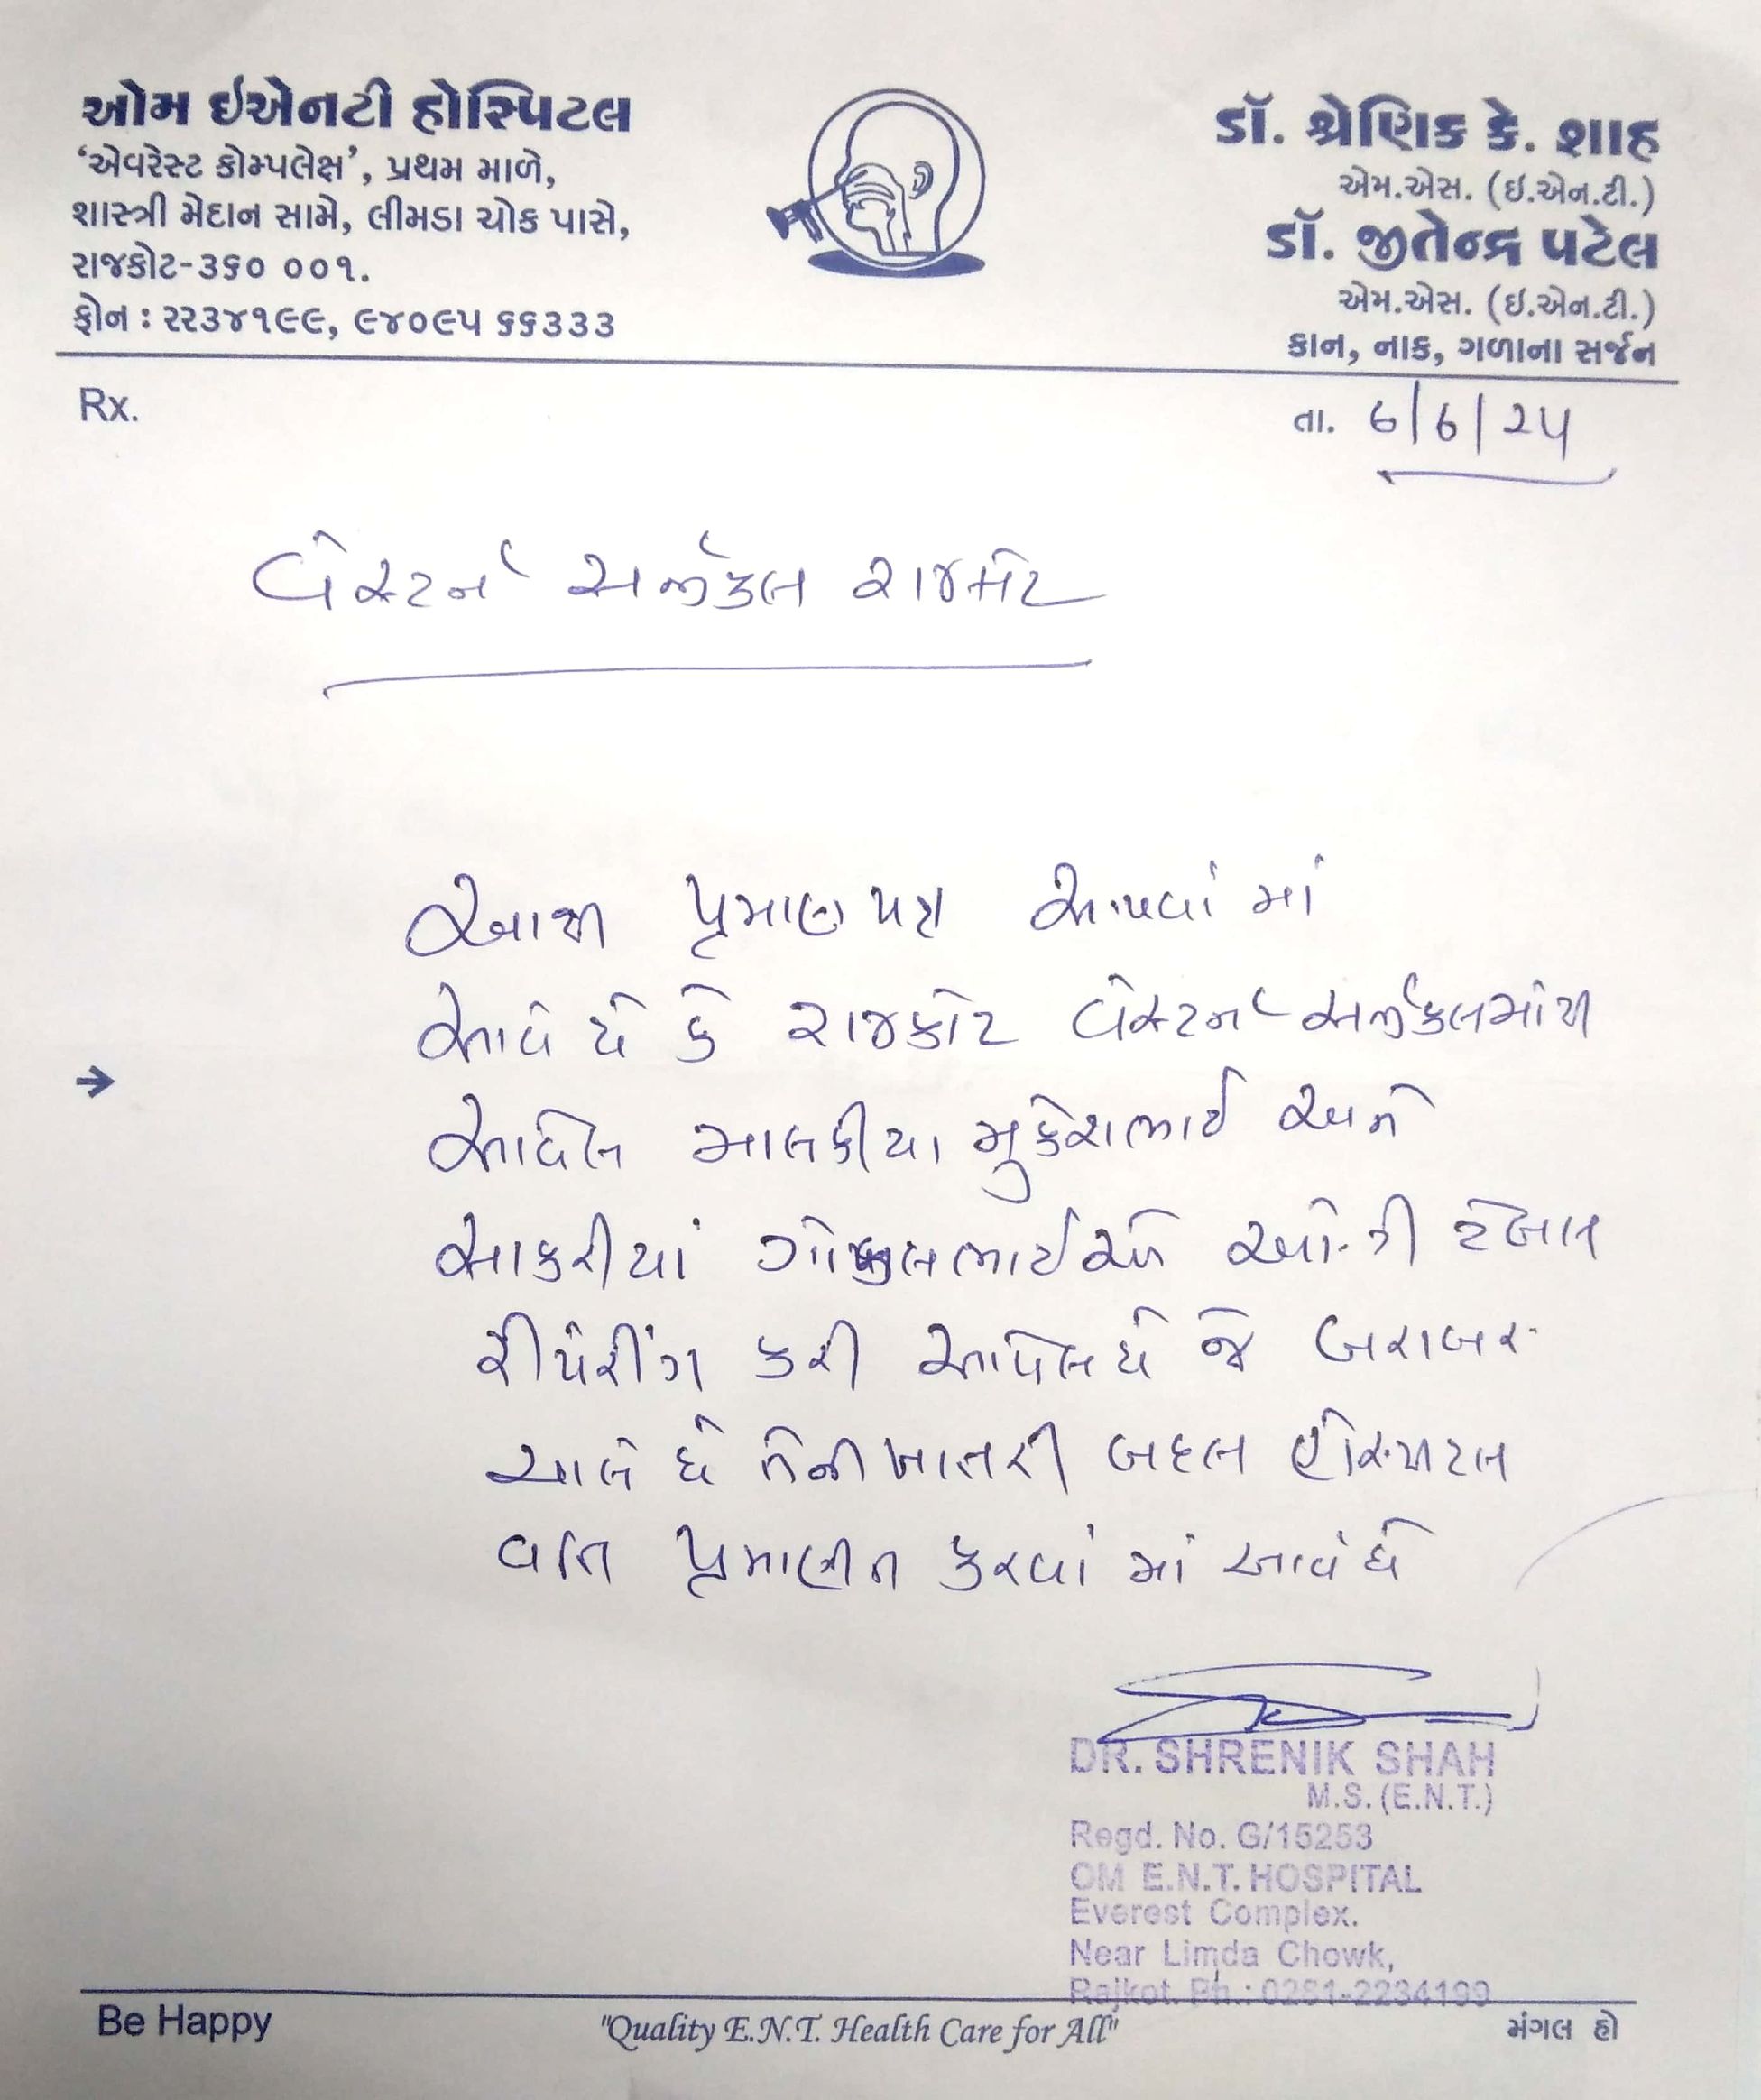 ઓમ ઇએનટી હોસ્પિટલ
‘એવરેસ્ટ કોમ્પલેક્ષ’, પ્રથમ માળે,
શાસ્ત્રી મેદાન સામે, લીમડા ચોક પાસે,
રાજકોટ-૩૬૦ ૦૦૧.
ફોન : ૨૨૩૪૧૯૯, ૯૪૦૯૫ ૬૬૩૩૩
ડૉ. શ્રેણિક કે. શાહ
એમ.એસ. (ઇ.એન.ટી.)
ડૉ. જીતેન્દ્ર પટેલ
એમ.એસ. (ઇ.એન.ટી.)
કાન, નાક, ગળાના સર્જન
Rx.
તા. ૬/૬/૨૫
વેસ્ટર્ન સર્જીકલ રાજકોટ
આથી પ્રમાણ પત્ર આપવાં માં
આવે છે કે રાજકોટ વેસ્ટર્ન સર્જીકલમાંથી
આવેલ માલકીયા મુકેશભાઈ અને
સાકરીયાં ગોકુલભાઈએ ઓ.ટી ટેબલ
રીપેરીંગ કરી આપેલ છે જે બરાબર
ચાલે છે તેની ખાતરી બદલ હોસ્પીટલ
વતિ પ્રમાણીત કરવાં માં આવે છે
DR. SHRENIK SHAH
M.S. (E.N.T.)
Regd. No. G/15253
OM E.N.T. HOSPITAL
Everest Complex.
Near Limda Chowk,
Rajkot. Ph.: 0281-2234199
Be Happy
"Quality E.N.T. Health Care for All"
મંગલ હો